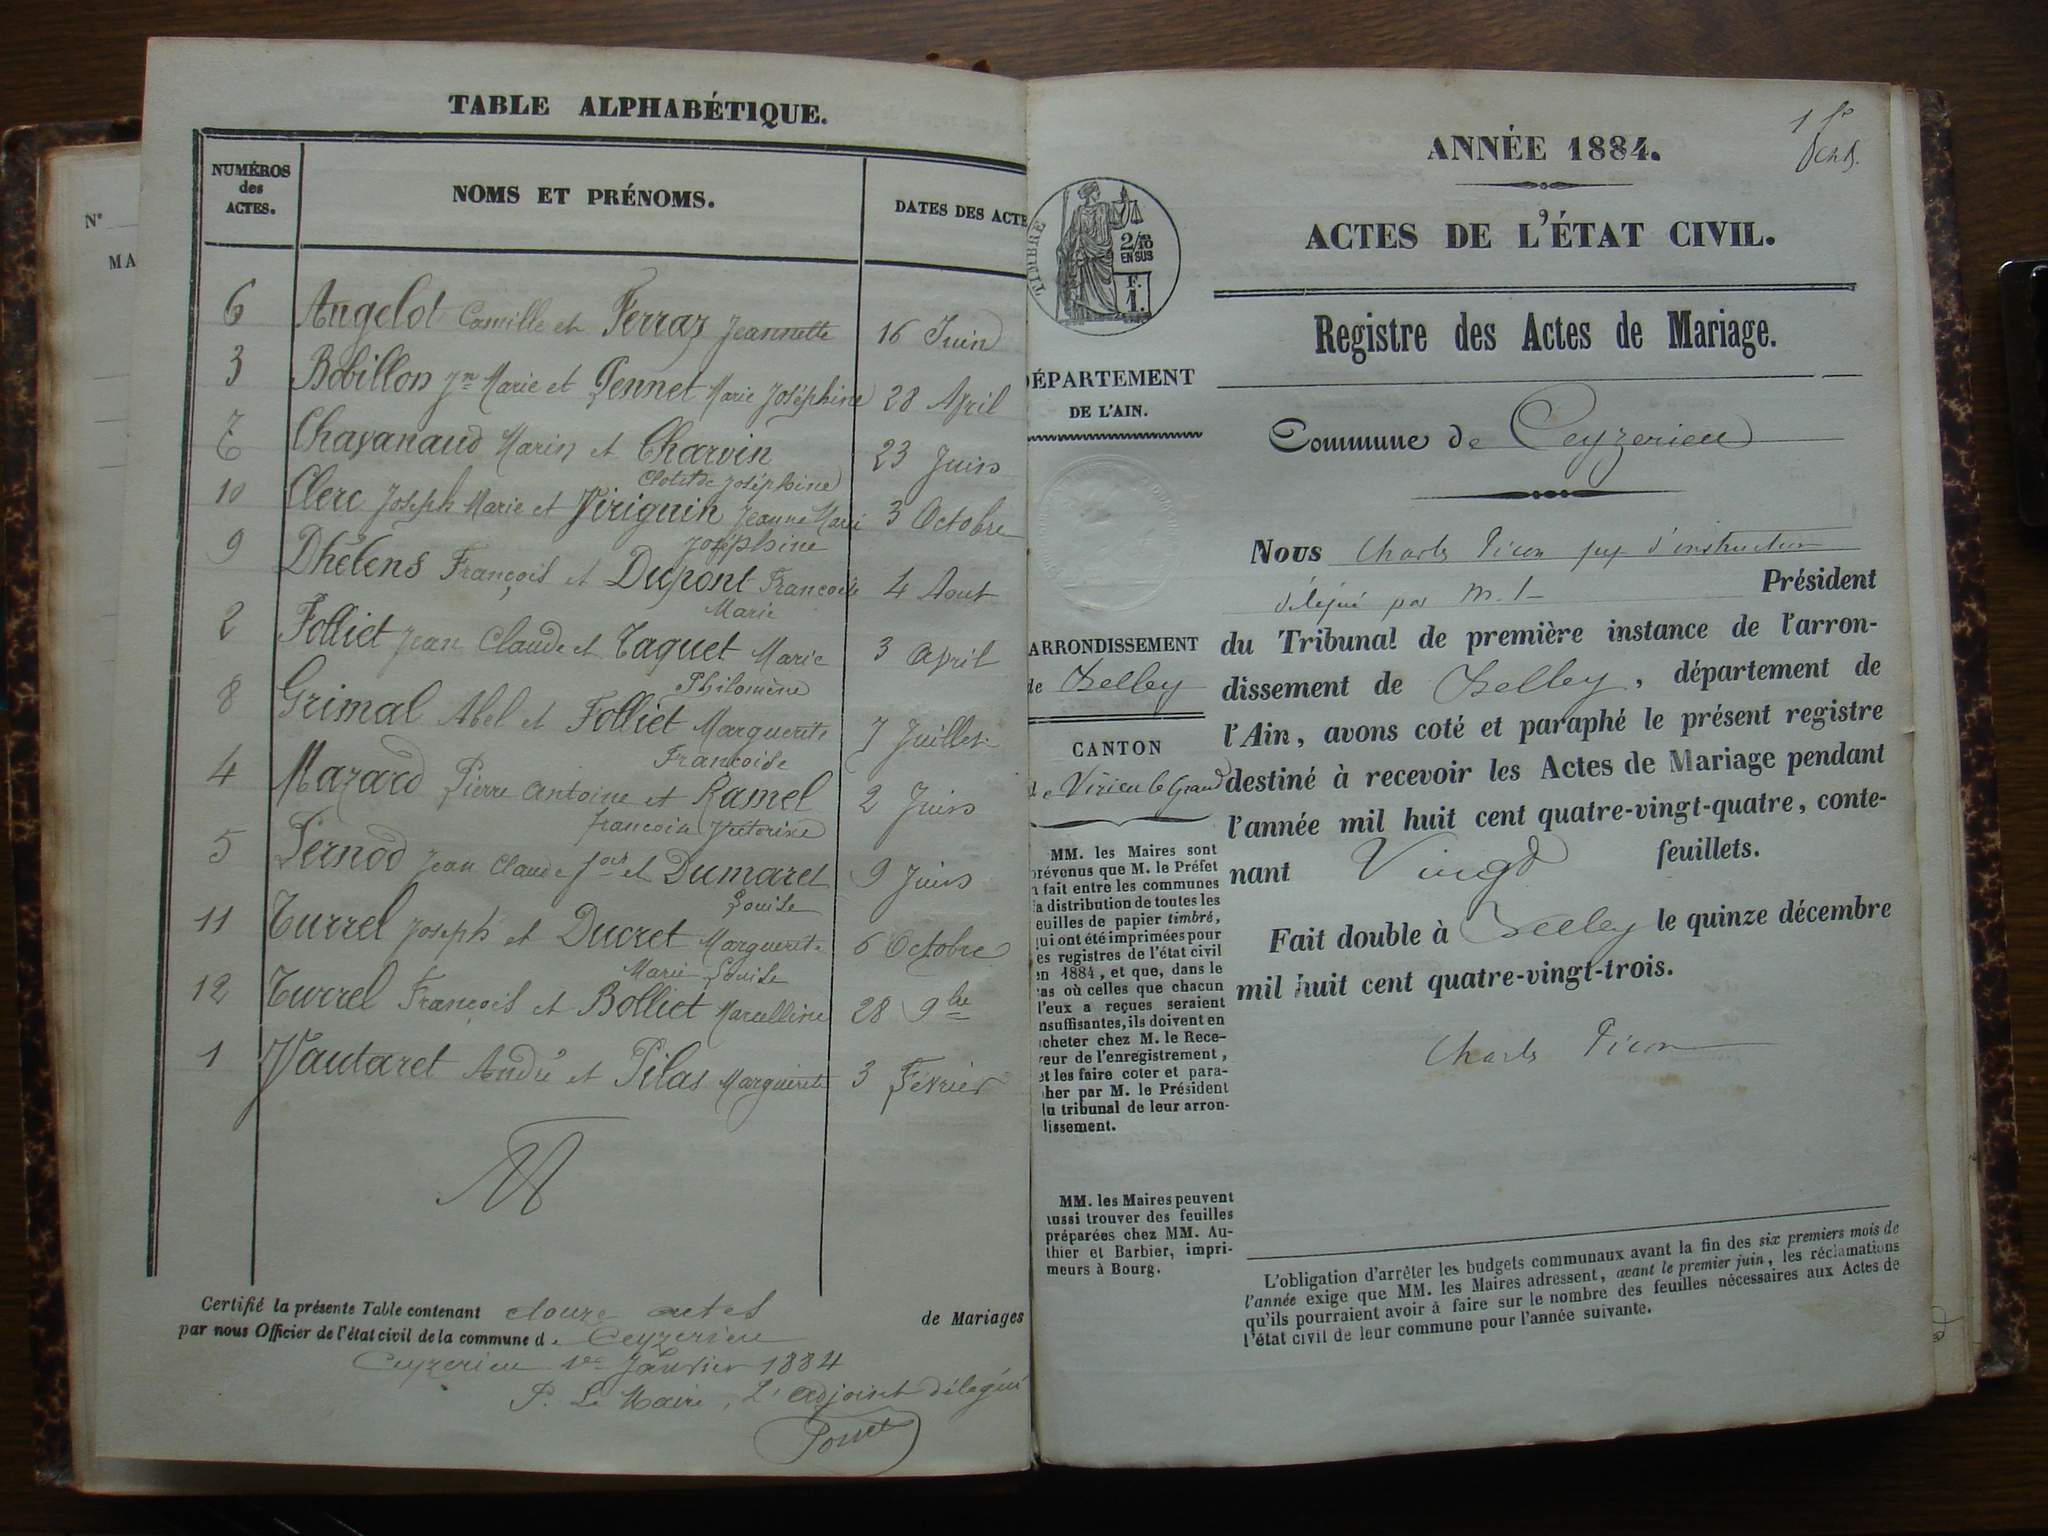 N°
MA
TABLE ALPHABÉTIQUE.
NUMÉROS
des
ACTES.
NOMS ET PRÉNOMS.
DATES DES ACTE
6 Angelot Camille et Ferraz Jeannette 16 Juin
3 Bobillon Jn Marie et Pennet Marie Joséphine 28 April
7 Chavanaud Marin et Charvin 23 Juin
Clotilde Joséphine
10 Clerc Joseph Marie et Viriguin Jeanne Marie 3 Octobre
Joséphine
9 Dhélens François et Dupont Francoise 4 Aout
Marie
2 Folliet Jean Claude et Taquet Marie 3 April
Philomène
8 Grimal Abel et Folliet Marguerite 7 Juillet
Francoise
4 Mazard Pierre Antoine et Ramel 2 Juin
francoise Victorine
5 Pernod Jean Claude et Dumaret 9 Juin
Louise
11 Turrel Joseph et Ducret Marguerite 6 Octobre
Marie Louise
12 Turrel François et Bolliet Marcelline 28 9bre
1 Vautaret André et Pilas Marguerite 3 Février
Certifié la présente Table contenant douze actes de Mariages
par nous Officier de l'état civil de la commune de Ceyzerieu
Ceyzerieu 1er Janvier 1884
P. Le Maire, L'adjoint délégué
1 fo
ANNÉE 1884.
ACTES DE L'ÉTAT CIVIL.
TIMBRE
2/10
EN SUS
F.
1.
Registre des Actes de Mariage.
DÉPARTEMENT
DE L'AIN.
Commune de Ceyzerieu
Nous Charles Picon juge d'instruction
délégué par M. le Président
du Tribunal de première instance de l'arron-
dissement de Belley, département de
l'Ain, avons coté et paraphé le présent registre
destiné à recevoir les Actes de Mariage pendant
l'année mil huit cent quatre-vingt-quatre, conte-
nant Vingt feuillets.
Fait double à Belley le quinze décembre
mil huit cent quatre-vingt-trois.
Charles Picon
ARRONDISSEMENT
de Belley
CANTON
de Virieu le Grand
MM. les Maires sont
prévenus que M. le Préfet
a fait entre les communes
la distribution de toutes les
feuilles de papier timbré,
qui ont été imprimées pour
les registres de l'état civil
en 1884, et que, dans le
cas où celles que chacun
d'eux a reçues seraient
insuffisantes, ils doivent en
acheter chez M. le Rece-
veur de l'enregistrement,
et les faire coter et para-
pher par M. le Président
du tribunal de leur arron-
dissement.
MM. les Maires peuvent
aussi trouver des feuilles
préparées chez MM. Au-
thier et Barbier, impri-
meurs à Bourg.
L'obligation d'arrêter les budgets communaux avant la fin des six premiers mois de
l'année exige que MM. les Maires adressent, avant le premier juin, les réclamations
qu'ils pourraient avoir à faire sur le nombre des feuilles nécessaires aux Actes de
l'état civil de leur commune pour l'année suivante.